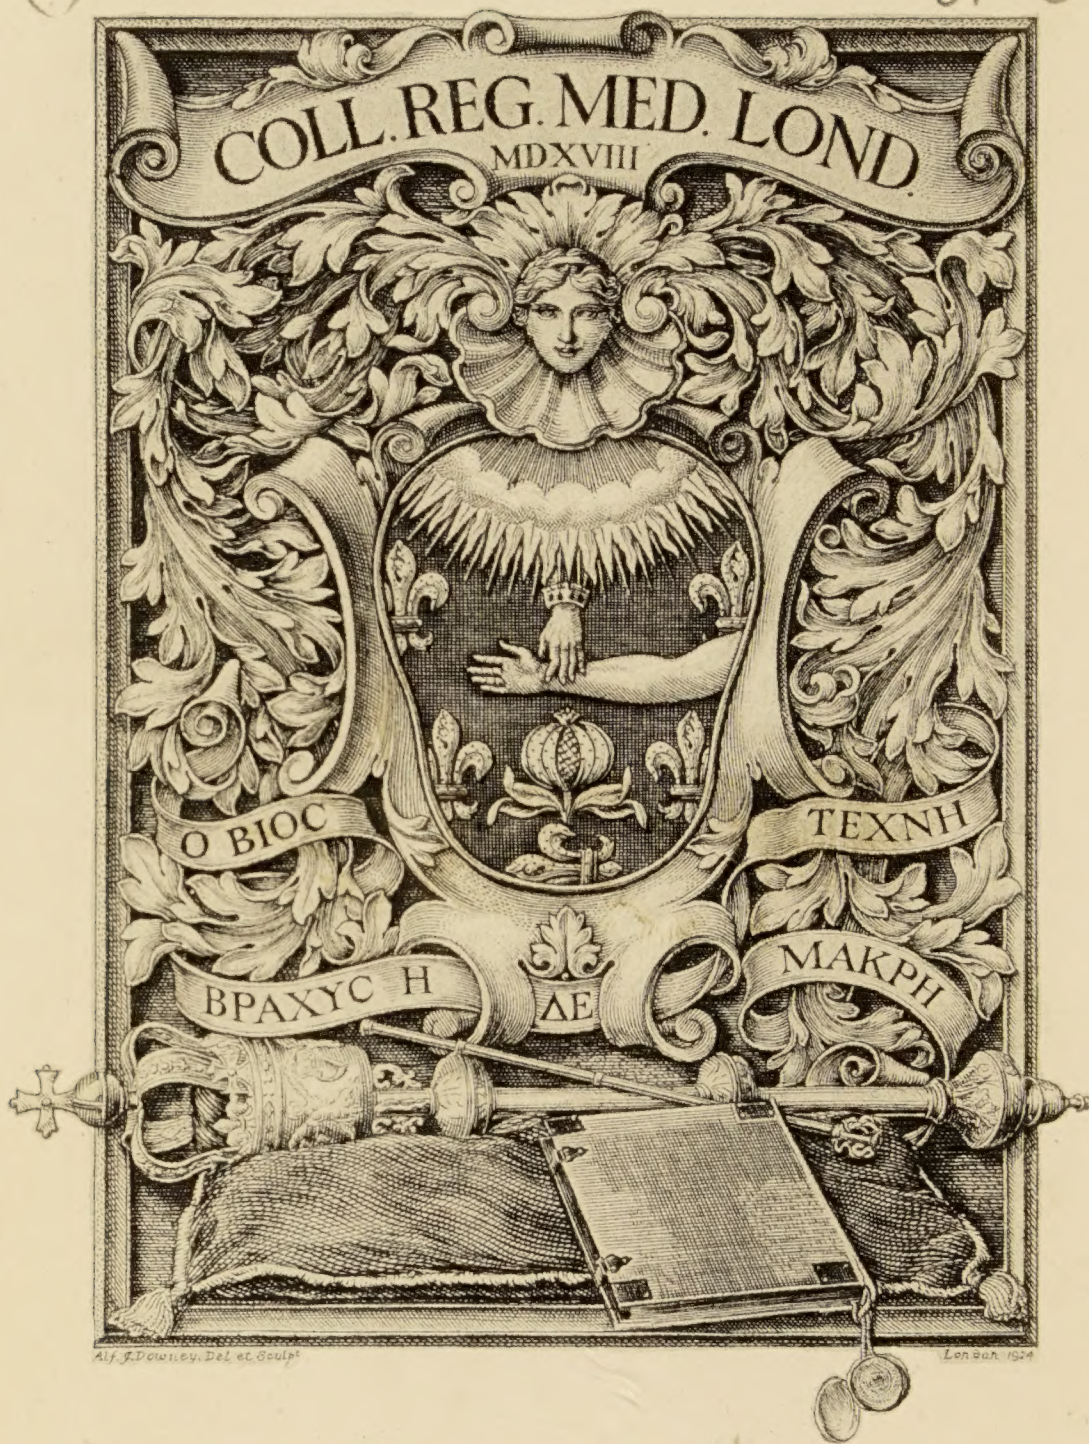 COLL. REG. MED. LOND.
MDXVIII
Ο ΒΙΟC
ΒΡΑΧΥC Η
ΔΕ
ΤΕΧΝΗ
ΜΑΚΡΗ
Alf. J. Downey. Del et Sculpt
London 1924